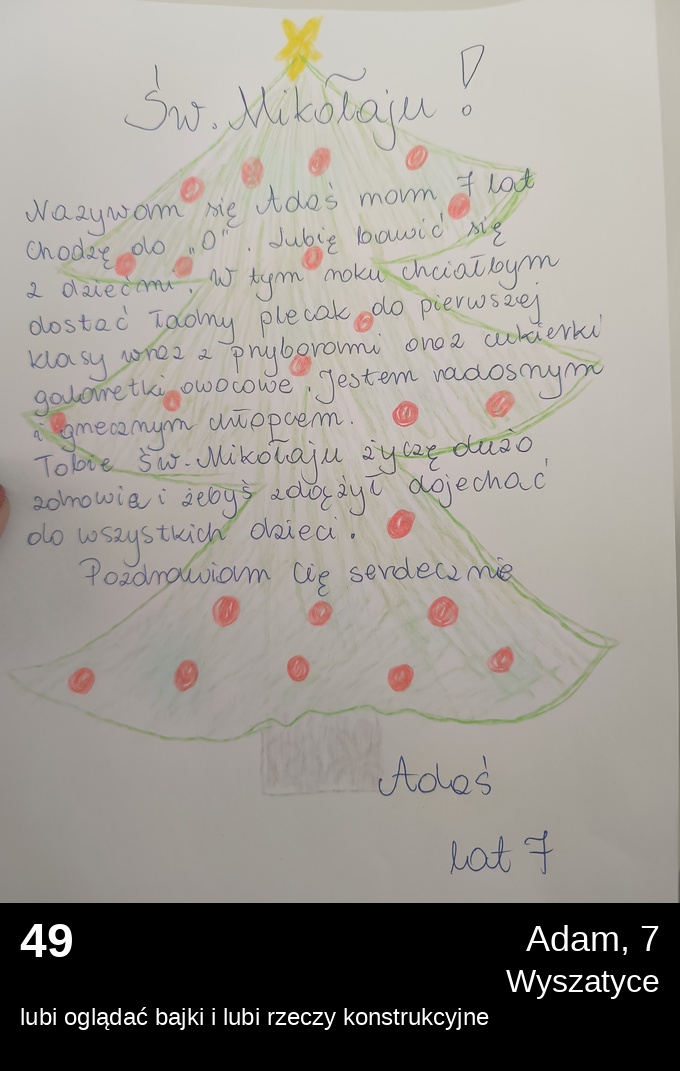 Św. Mikołaju!
Nazywam się Adaś mam 7 lat
chodzę do „0". Lubię bawić się
z dziećmi. W tym roku chciałbym
dostać ładny plecak do pierwszej
klasy wraz z przyborami oraz cukierki
galaretki owocowe. Jestem radosnym
i grzecznym chłopcem.
Tobie Św. Mikołaju życzę dużo
zdrowia i żebyś zdążył dojechać
do wszystkich dzieci.
Pozdrawiam Cię serdecznie
Adaś
lat 7
49
Adam, 7
Wyszatyce
lubi oglądać bajki i lubi rzeczy konstrukcyjne